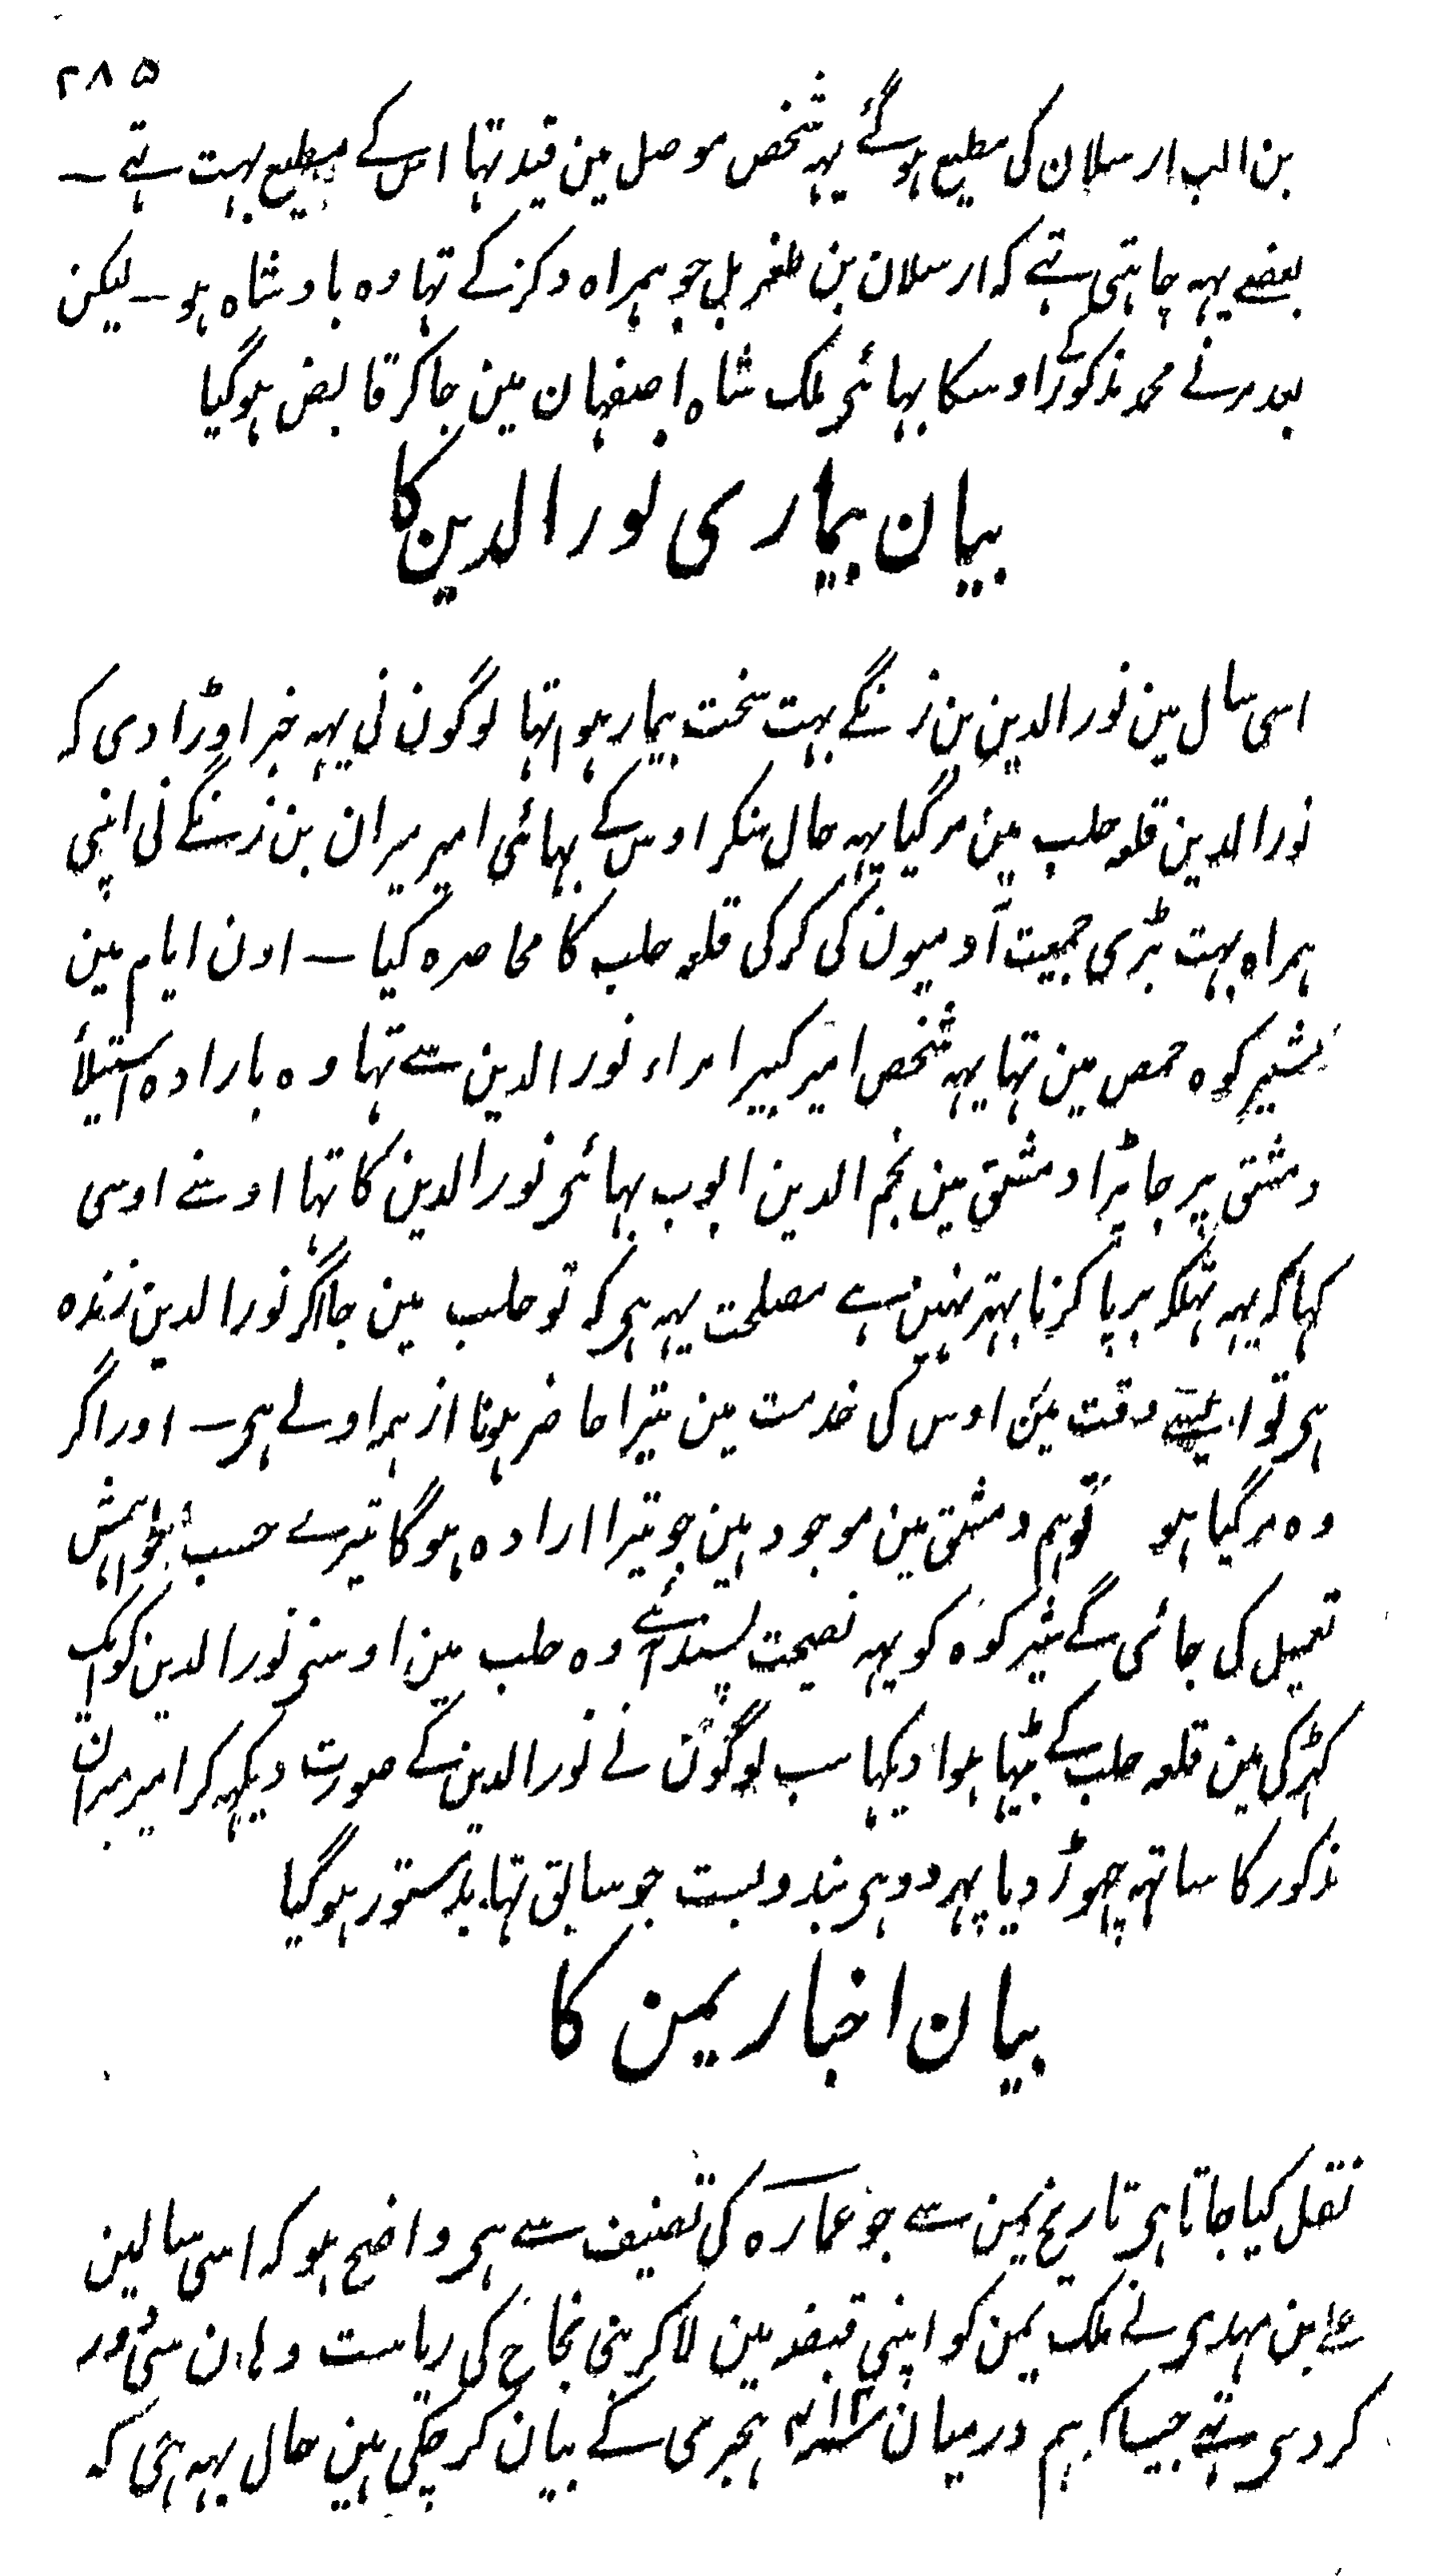 ۲۸۵
بن الب ارسلان کی مطیع ہوگئے یہہ شخص موصل مین قید تہا اس کے مطیع بہت تہے —
بعضے یہہ چاہتی تہے کہ ارسلان بن طغربل جو ہمراہ دکز کے تہا وہ بادشاہ ہو — لیکن
بعد مرنے محمد مذکور کے اوسکا بہائی ملک شاہ اصفہان مین جاکر قابض ہوگیا
بیان بیماری نورالدین کا
اسی سال مین نورالدین بن زنگے بہت سخت بیمار ہوا تہا لوگون نی یہہ خبر اوڑا دی کہ
نورالدین قلعہ حلب مین مرگیا یہہ حال سنکر اوس کے بہائی امیر میران بن زنگے نی اپنی
ہمراہ بہت بڑی جمعیت آدمیون کی کرکی قلعہ حلب کا محاصرہ کیا — اون ایام مین
شیرکوہ حمص مین تہا یہہ شخص امیر کبیر امراء نورالدین سے تہا وہ بارادہ استیلأ
دمشق پر جا پڑا دمشق مین نجم الدین ایوب بہائی نورالدین کا تہا اوسنے اوسی
کہا کہ یہہ تہلکہ برپا کرنا بہتر نہین ہے مصلحت یہہ ہی کہ تو حلب مین جا اگر نورالدین زندہ
ہی تو ایسے وقت مین اوس کی خدمت مین تیرا حاضر ہونا از ہمہ اولے ہی — اور اگر
وہ مرگیا ہو تو ہم دمشق مین موجود ہین جو تیرا ارادہ ہوگا تیرے حسب خواہش
تعمیل کی جائی گے شیرکوہ کو یہہ نصیحت پسند آئے وہ حلب مین اوسنی نورالدین کو ایک
کہڑکی مین قلعہ حلب کے بیٹہا ہوا دیکہا سب لوگون نے نورالدین کے صورت دیکہہ کر امیر میران
مذکور کا ساتہہ چہوڑ دیا پہر دوہی بندوبست جو سابق تہا بدستور ہوگیا
بیان اخبار یمن کا
نقل کیا جاتا ہی تاریخ یمن سے جو عمارہ کی تصنیف سے ہی واضح ہو کہ اسی سالین
علے بن مہدی نے ملک یمن کو اپنی قبضہ مین لاکر بنی نجاح کی ریاست وہان سی دور
کردی تہے جیسا کہ ہم درمیان سنہ ہجری کے بیان کر چکی ہین حال یہہ ہی کہ